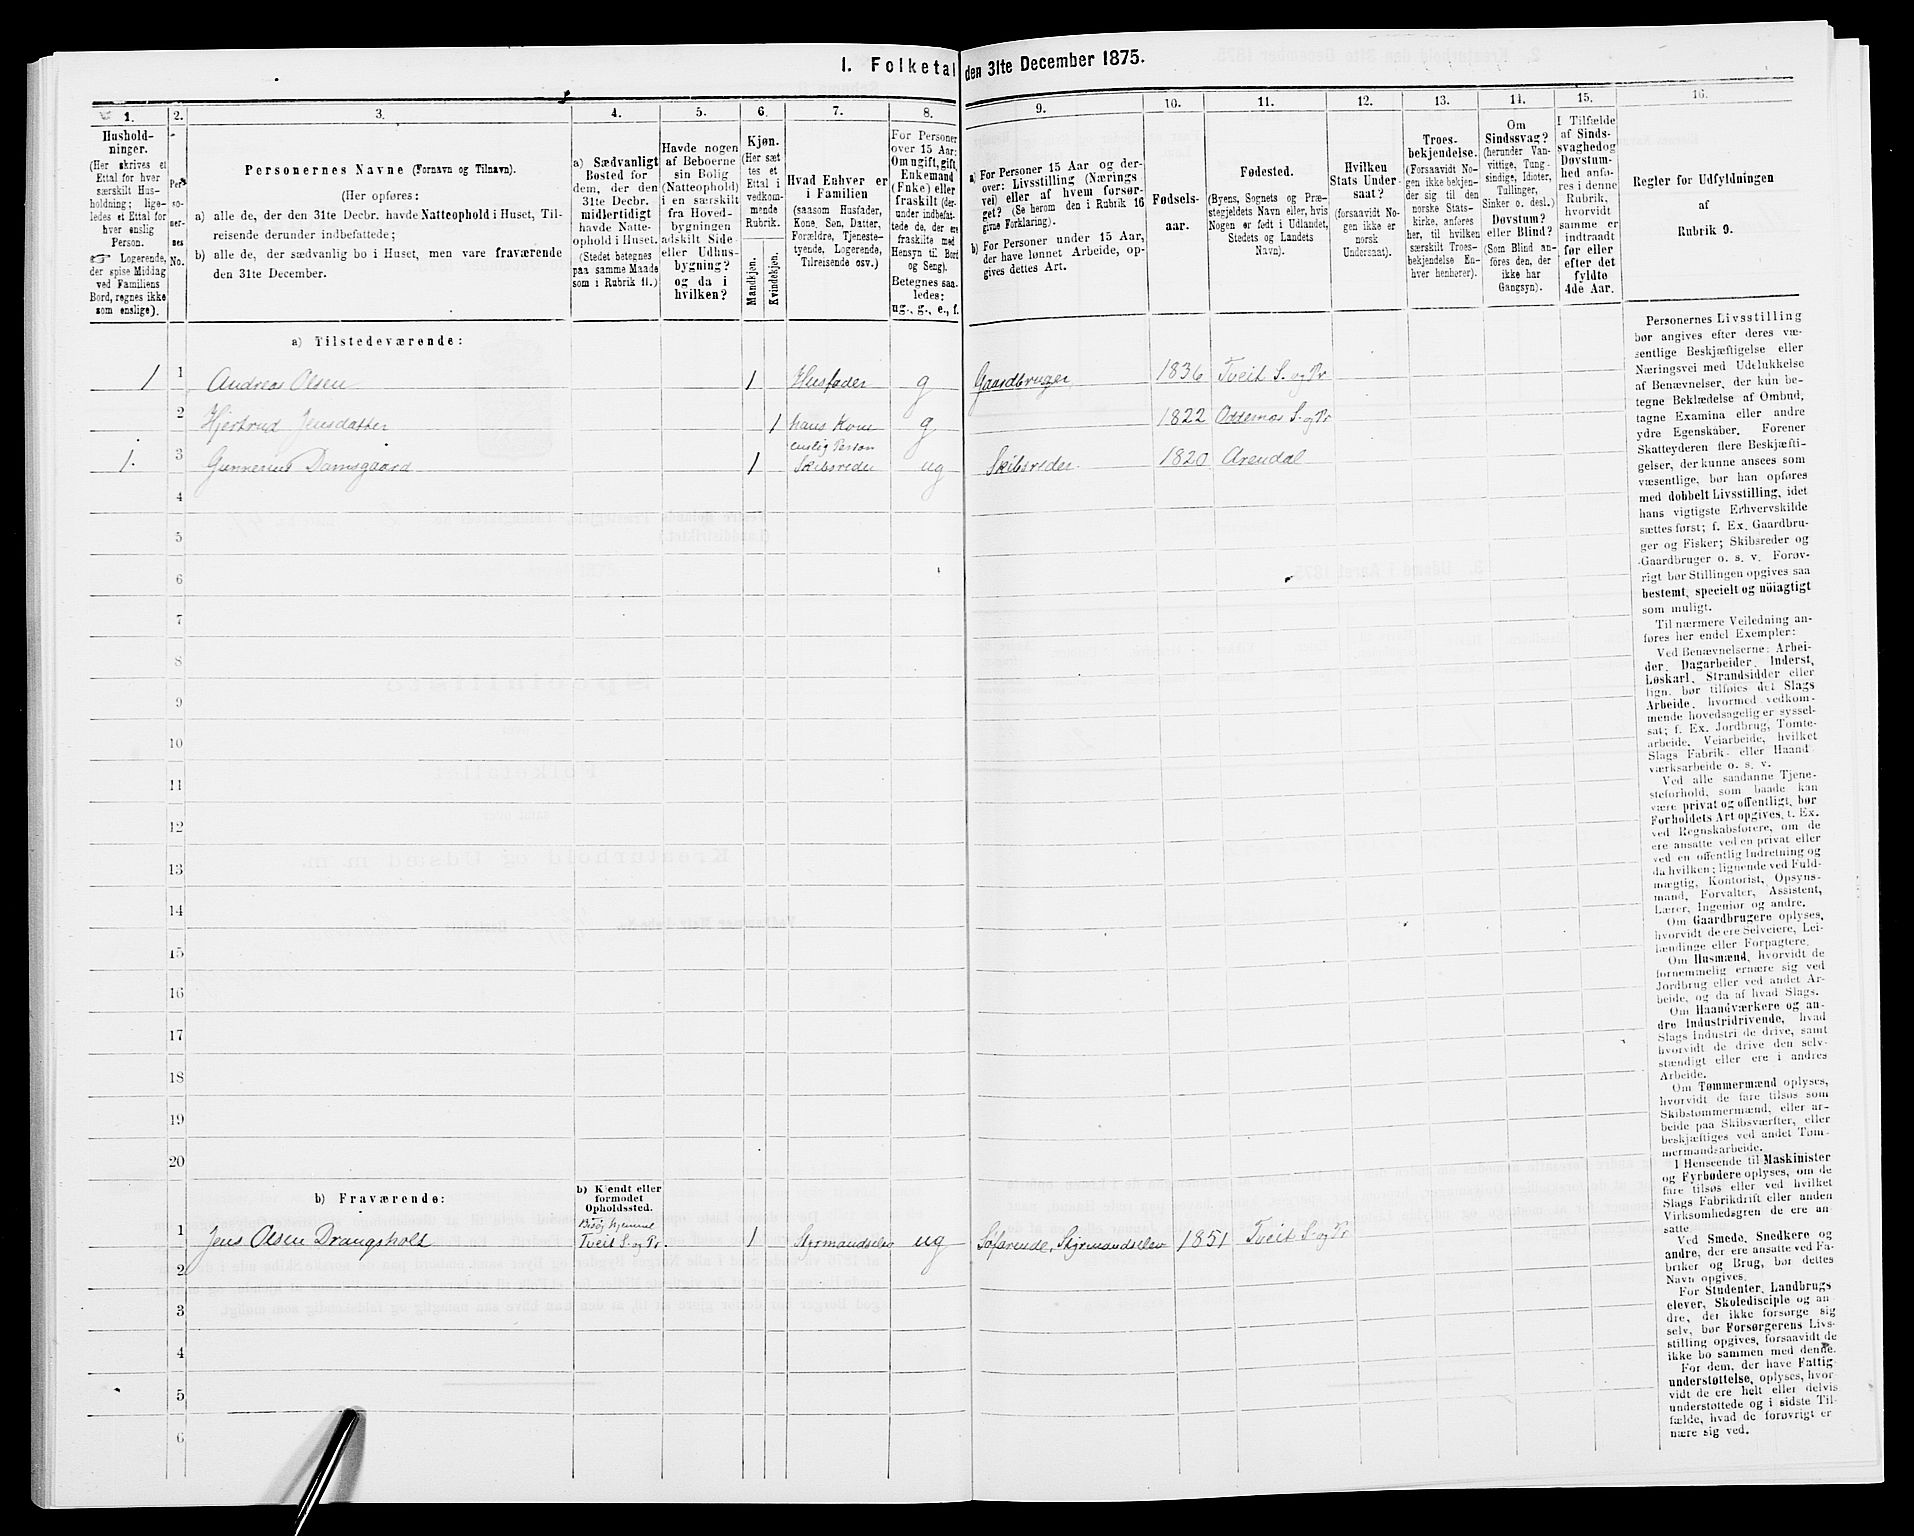 1. Folketal den 31te December 1875.
1.
Hushold-
ninger.
(Her skrives et
Ettal for hver
særskilt Hus-
holdning; lige-
ledes et Ettal for
hver enslig
Person.
☞ Logerende,
der spise Middag
ved Familiens
Bord, regnes ikke
som enslige).
2.
Per-
so-
ner-
nes
No.
3.
Personernes Navne (Fornavn og Tilnavn).
(Her opføres:
a) alle de, der den 31te Decbr. havde Natteophold i Huset, Til-
reisende derunder indbefattede;
b) alle de, der sædvanlig bo i Huset, men vare fraværende
den 31te December.
4.
a) Sædvanligt
Bosted for
dem, der den
31te Decbr.
midlertidigt
havde Natte-
ophold i Huset.
(Stedet betegnes
paa samme Maade
som i Rubrik 11.)
5.
Havde nogen
af Beboerne
sin Bolig
(Natteophold)
i en særskilt
fra Hoved-
bygningen
adskilt Side-
eller Udhus-
bygning?
og da i
hvilken?
6.
Kjøn.
(Her sæt-
tes et
Ettal i
vedkom-
mende
Rubrik.
Mandkjøn.
Kvindekjøn.
7.
Hvad Enhver er
i Familien
(saasom Husfader,
Kone, Søn, Datter,
Forældre, Tjeneste-
tyende, Logerende,
Tilreisende osv.)
8.
For Personer
over 15 Aar:
Om ugift, gift,
Enkemand
(Enke) eller
fraskilt (der-
under indbefat-
tede de, der ere
fraskilte med
Hensyn til Bord
og Seng).
Betegnes saa-
ledes:
ug., g., e., f.
9.
a) For Personer 15 Aar og der-
over: Livsstilling (Nærings
vei) eller af hvem forsør-
get? (Se herom den i Rubrik 16
givne Forklaring).
b) For Personer under 15 Aar,
der have lønnet Arbeide, op-
gives dettes Art.
10.
Fødsels-
aar.
11.
Fødested.
(Byens, Sognets og Præ-
stegjeldets Navn eller, hvis
Nogen er født i Udlandet,
Stedets og Landets
Navn).
12.
Hvilken
Stats Under-
saat?
(forsaavidt No-
gen ikke er
norsk
Undersaat).
13.
Troes-
bekjendelse.
(Forsaavidt No-
gen ikke bekjen-
der sig til den
norske Stats-
kirke, anføres
her, til hvilken
særskilt Troes-
bekjendelse En-
hver henhører).
14.
Om
Sindssvag?
(herunder Van-
vittige, Tung-
sindige, Idioter,
Tullinger,
Sinker o. desl.)
Døvstum?
eller Blind?
(Som Blind an-
føres den, der
ikke har
Gangsyn).
15.
I Tilfælde
af Sinds-
svaghed og
Døvstum-
hed anfø-
res i denne
Rubrik,
hvorvidt
samme er
indtraadt
før eller
efter det
fyldte
4de Aar.
16.
Regler for Udfyldningen
af
Rubrik 9.
a) Tilstedeværende:
1 1 Andreas Olsen 1 Husfader g Gaardbruger 1836 Tveit S. og Pr
2 Hjertrud Jensdatter 1 hans Kone g 1822 Oddernes S. og Pr
enslig Person
1. 3 Gunnerius Damsgaard 1 Skibsreder ug Skibsreder. 1820 Arendal
4
5
6
7
8
9
10
11
12
13
14
15
16
17
18
19
20
b) Fraværende:
b) Kjendt eller
formodet
Opholdssted.
1 Jens Olsen Drangsholt Tveit S. og Pr. 1 Styrmandselev ug Søfarende, Styrmandselev 1851 Tveit S. og Pr
2
3
4
5
6
Personernes Livsstilling
bør angives efter deres væ-
sentlige Beskjæftigelse eller
Næringsvei med Udelukkelse
af Benævnelser, der kun be-
tegne Beklædelse af Ombud,
tagne Examina eller andre
ydre Egenskaber. Forener
Skatteyderen flere Beskjæfti-
gelser, der kunne ansees som
væsentlige, bør han opføres
med dobbelt Livsstilling, idet
hans vigtigste Erhvervskilde
sættes først; f. Ex. Gaardbru-
ger og Fisker; Skibsreder og
Gaardbruger o. s. v. Forøv-
rigt bør Stillingen opgives saa
bestemt, specielt og nöiagtigt
som muligt.
Til nærmere Veiledning an-
føres her endel Exempler:
Ved Benævnelserne: Arbei-
der, Dagarbeider, Inderst,
Løskarl, Strandsidder eller
lign. bør tilføies det Slags
Arbeide, hvormed vedkom-
mende hovedsagelig er syssel-
sat; f. Ex. Jordbrug, Tomte-
arbeide, Veiarbeide, hvilket
Slags Fabrik- eller Haand
værksarbeide o. s. v.
Ved alle saadanne Tjene-
steforhold, som baade kan
være privat og offentligt, bør
Forholdets Art opgives, t. Ex.
ved Regnskabsførere, om de
ere ansatte ved en privat eller
ved en offentlig Indretning og
da hvilken; lignende ved Fuld-
mægtig, Kontorist, Opsyns-
mand, Forvalter, Assistent,
Lærer, Ingeniør og andre.
Om Gaardbrugere oplyses,
hvorvidt de ere Selveiere, Lei-
lændinge eller Forpagtere.
Om Husmænd, hvorvidt de
fornemmelig ernære sig ved
Jordbrug eller ved andet Ar-
beide, og da af hvad Slags.
Om Haandværkere og an-
dre Industridrivende, hvad
Slags Industri de drive, samt
hvorvidt de drive den selv-
stændigt eller ere i andres
Arbeide.
Om Tømmermænd oplyses,
hvorvidt de fare tilsøs som
Skibstømmermænd, eller ar-
beide paa Skibsværfter, eller
beskjæftiges ved andet Tøm-
mermandsarbeide.
I Henseende til Maskinister
og Fyrbødere oplyses, om de
fare tilsøs eller ved hvilket
Slags Fabrikdrift eller anden
Virksomhedsgren de ere an-
satte.
Ved Smede, Snedkere og
andre, der ere ansatte ved Fa-
briker og Brug, bør dettes
Navn opgives.
For Studenter, Landbrugs
elever, Skoledisciple og an-
dre, der ikke forsørge sig
selv, bør Forsørgerens Livs-
stilling opgives, forsaavidt de
ikke bo sammen med denne.
For dem, der have Fattig-
understøttelse, oplyses, hvor-
vidt de ere helt eller delvis
understøttede og i sidste Til-
fælde, hvad de forøvrigt er
nære sig ved.